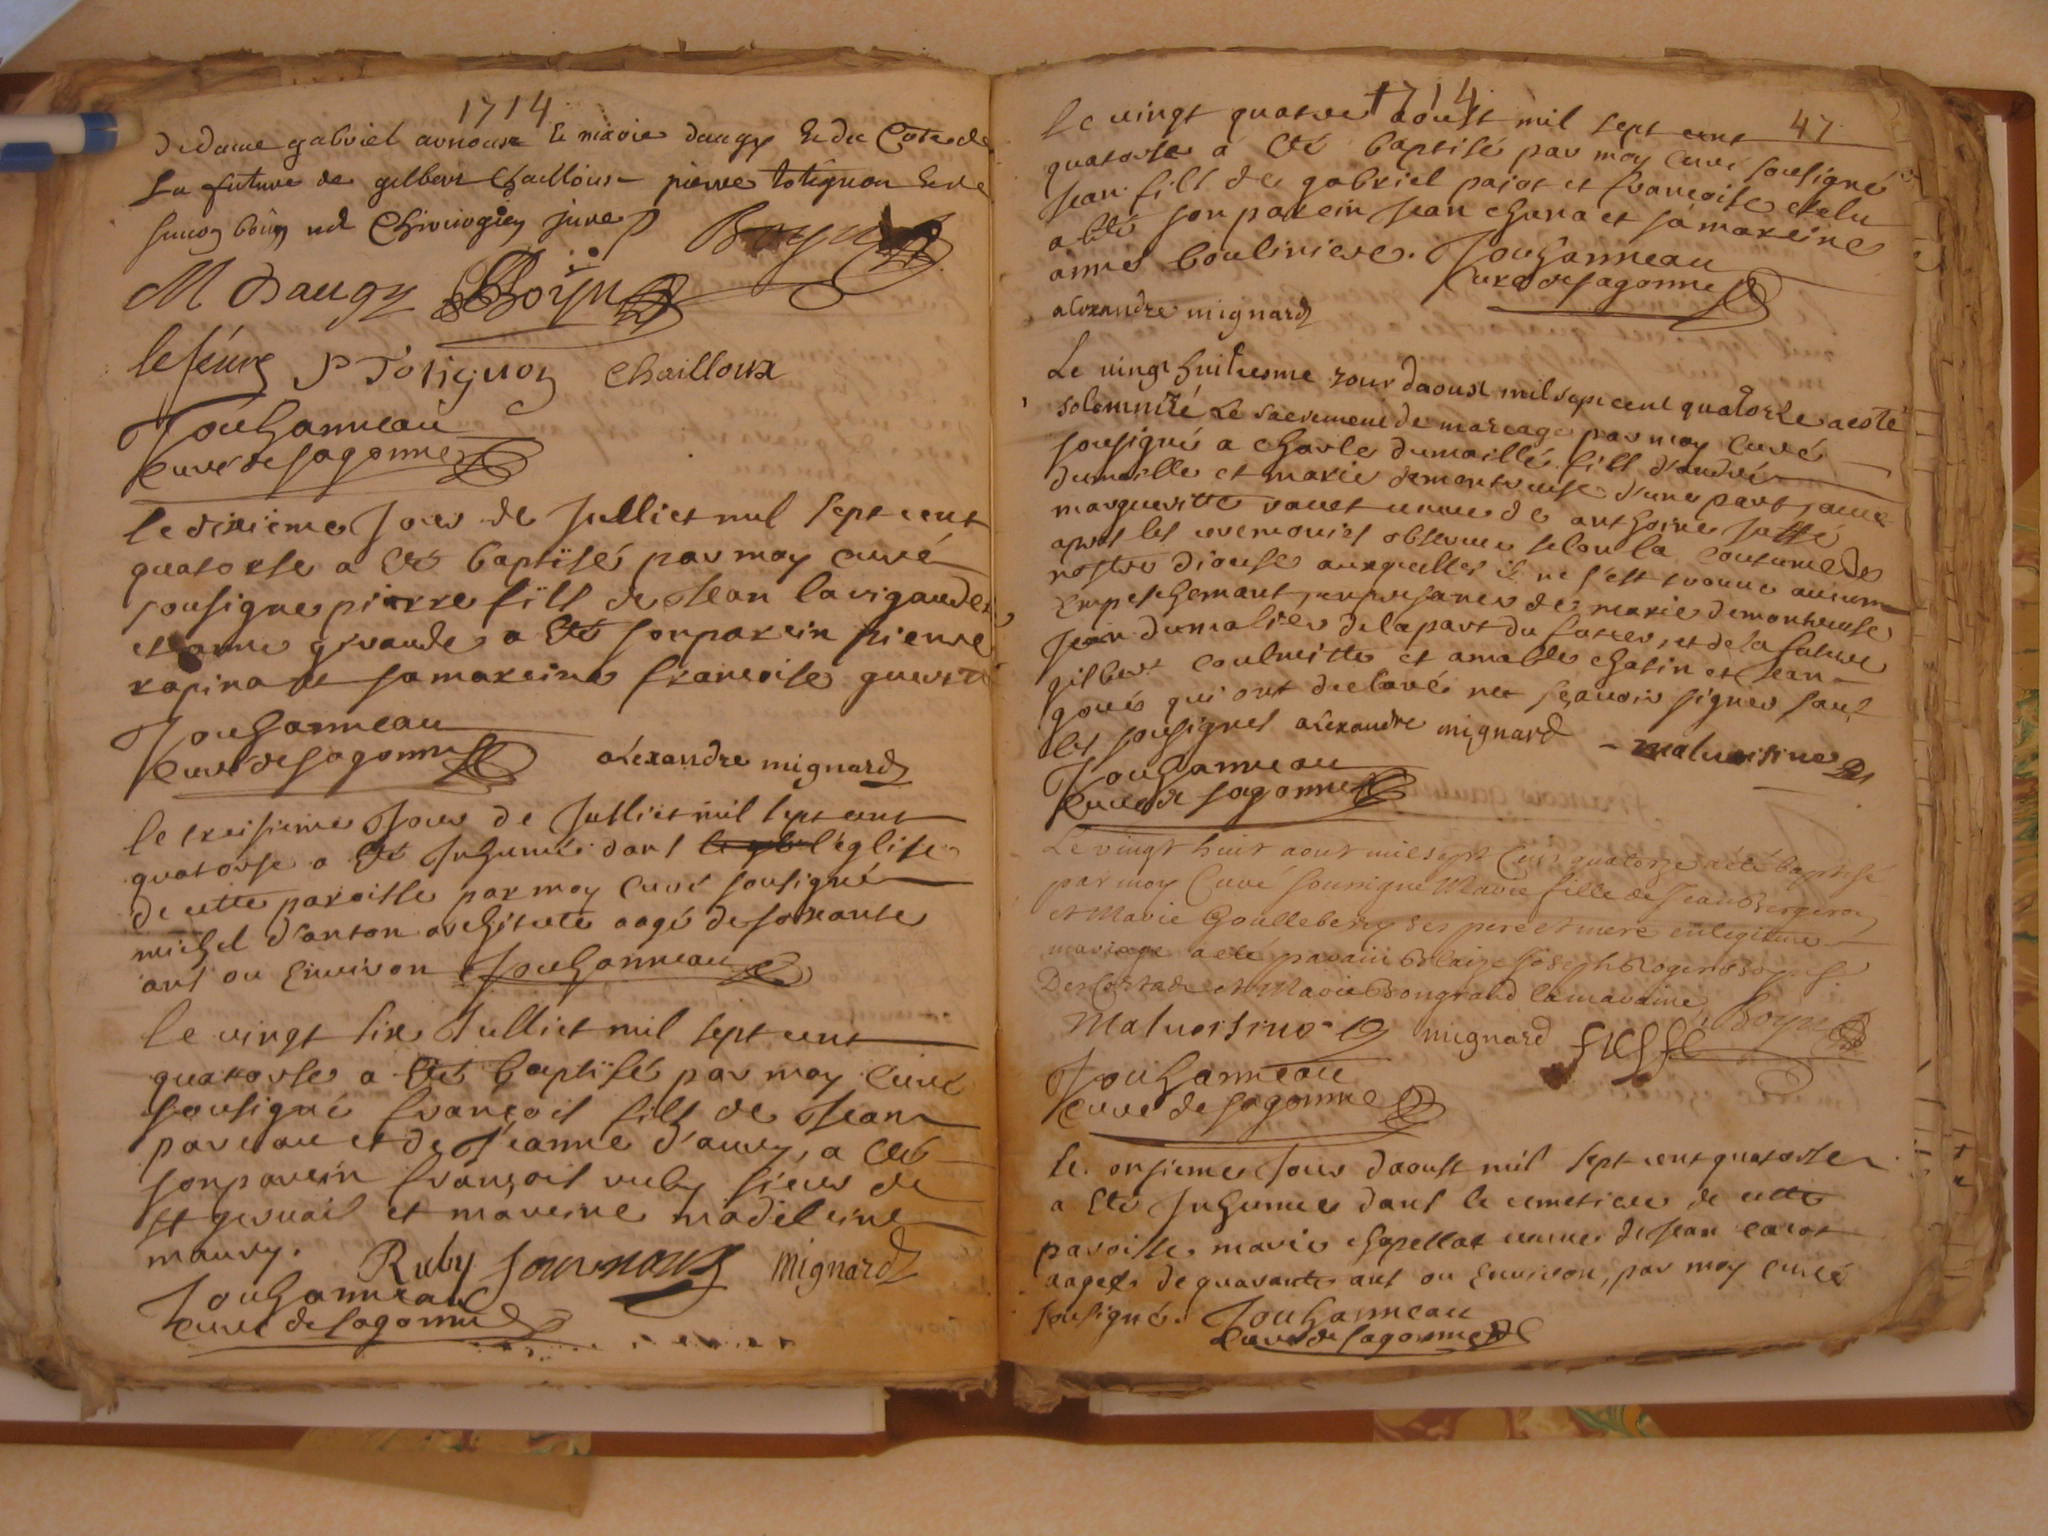 1714
de dame gabriel arnoux & marie daugy & du Coté de
La future de gilbert Chailloux pierre totignon & de
simon boüy md Chirurgien juré
M Daugy Boüy
lefeure P Totignon Chailloux
Jouhanneau
Curé de sagonne
le dixieme Jour de Julliet mil sept cent
quatorse a esté baptisé par moy curé
sousigne pierre fils de Jean lavigaude
et anne giraude a esté son parein pierre
rapina et sa mareine françoise
Jouhanneau
Curé de sagonne alexandre mignard
le treisieme Jour de Julliet mil sept cent
quatorse a esté Inhumé dans l'église
de cette paroisse par moy curé sousigné
michel d'anton architecte aagé de soixante
ans ou Environ Jouhanneau
le vingt six Julliet mil sept cent
quatorse a esté baptisé par moy curé
sousigné françois fils de Jean
pareau et de Jeanne d'aury, a esté
son parein françois ruby sieur de
st gervais et mareine madeleine
maury. Ruby mignard
Jouhanneau
curé de sagonne
1714
47
le vingt quatre aoust mil sept cent
quatorse a esté baptisé par moy curé sousigné
Jean fils de gabriel pajot et françoise
a esté son parein Jean et sa mareine
anne bouliniere. Jouhanneau
Curé de sagonne
alexandre mignard
Le vingt huitiesme jour daoust mil sept cent quatorze a esté
solemnizé Le sacrement de mareage par moy curé
sousigné a charle dumaillé fils d'andré
dumaille et marie demontreuse d'une part, avec
margueritte veuve de anthoine
apres les ceremonies observee selon la coutume de
nostre diocese auxquelles il ne s'est trouvé aucun
Empeschement, en presance de marie demontreuse
Jean dumalies de la part du et de la future
gilbert et amable chatin et Jean
qui ont declaré ne sçavoir signer sauf
les sousignes alexandre mignard malvoisine
Jouhanneau
Curé de sagonne
Le vingt huit aout mil sept Cens quatorze a été baptisé
par moy Curé soussigné Marie fille de Jean Bergeron
et Marie ses pere et mere en legitime
mariage a été parain Blaize Joseph Roger
et Marie Bongrand la maraine
Malvoisine mignard
Jouhanneau
curé de sagonne
le onsieme Jour daoust mil sept cent quatorse
a esté Inhumee dans le cemetiere de cette
paroisse marie chapellat veuve de Jean carot
aagee de quarante ans ou Environ, par moy curé
sousigné. Jouhanneau
Curé de sagonne